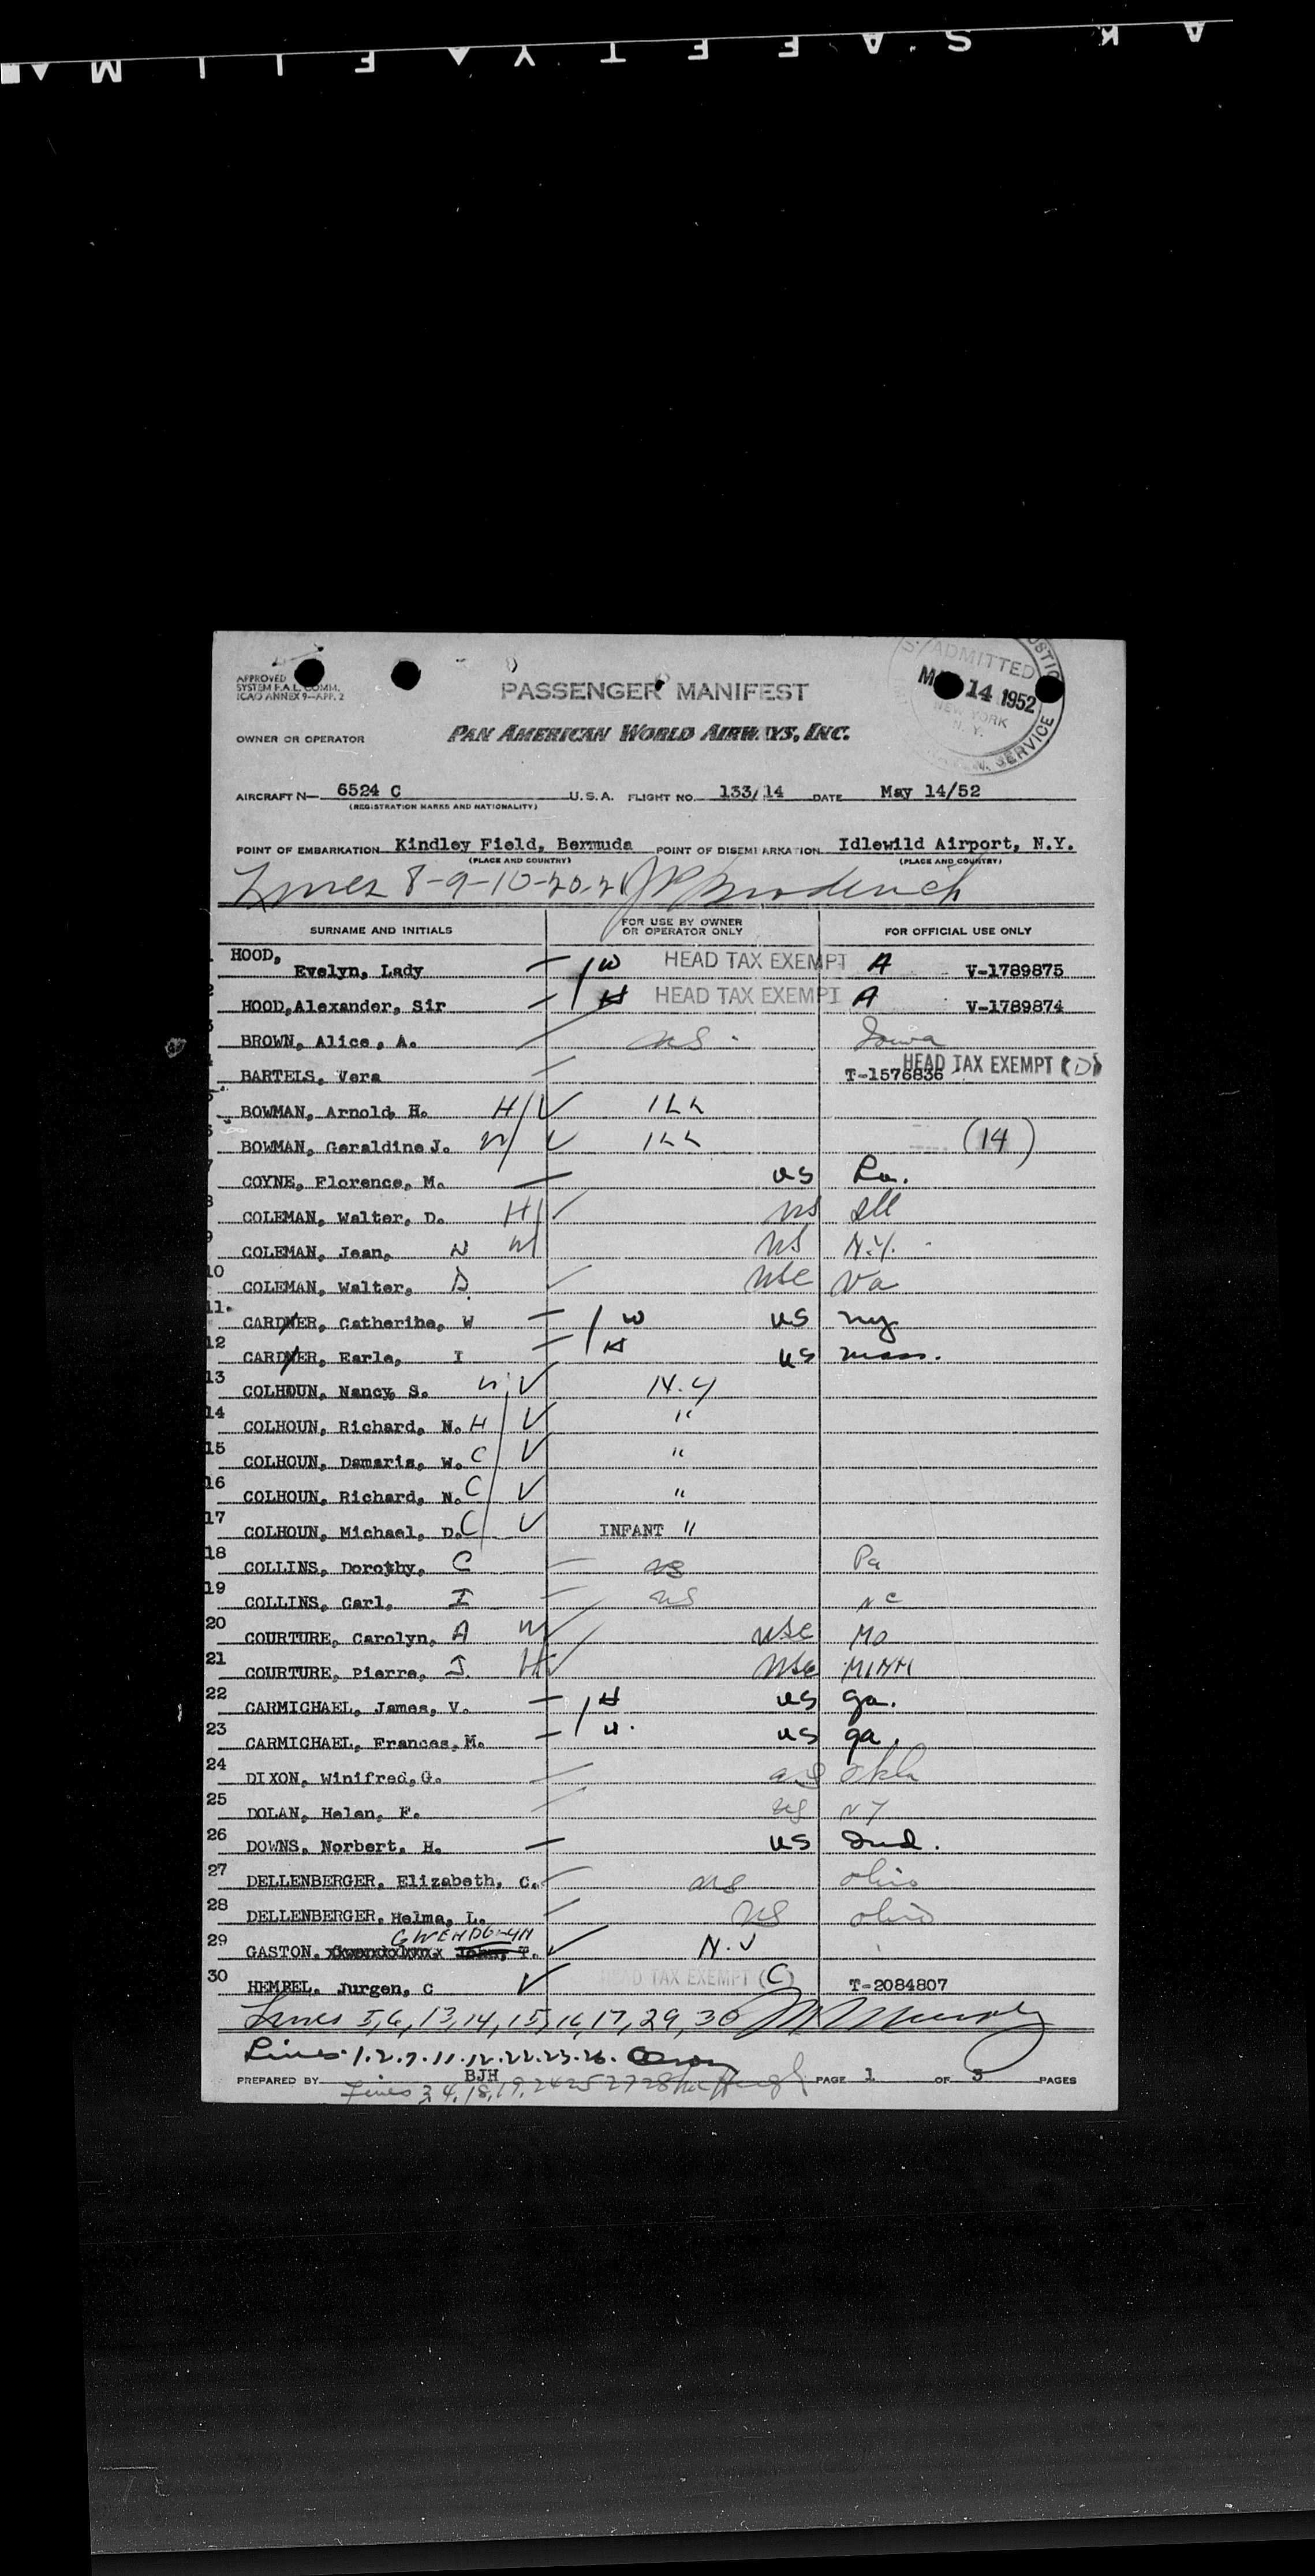 APPROVED
SYSTEM F.A.L. COMM.
ICAO ANNEX 9—APP. 2
ADMITTED
14 1952
NEW YORK
N. Y.
SERVICE
PASSENGER MANIFEST
OWNER OR OPERATOR PAN AMERICAN WORLD AIRWAYS, INC.
AIRCRAFT N— 6524 C U.S.A. FLIGHT NO. 133/14 DATE May 14/52
(REGISTRATION MARKS AND NATIONALITY)
POINT OF EMBARKATION Kindley Field, Bermuda POINT OF DISEMBARKATION Idlewild Airport, N.Y.
(PLACE AND COUNTRY) (PLACE AND COUNTRY)
Lines 8-9-10-20-21
SURNAME AND INITIALS FOR USE BY OWNER OR OPERATOR ONLY FOR OFFICIAL USE ONLY
1 HOOD, Evelyn, Lady W HEAD TAX EXEMPT A V-1789875
2 HOOD, Alexander, Sir H HEAD TAX EXEMPT A V-1789874
3 BROWN, Alice, A. US. Iowa
4 BARTELS, Vera T-1576836 HEAD TAX EXEMPT (D)
5 BOWMAN, Arnold, H. H ILL
6 BOWMAN, Geraldine J. W ILL (14)
7 COYNE, Florence, M. US
8 COLEMAN, Walter, D. H US Ill
9 COLEMAN, Jean, N W US N.Y.
10 COLEMAN, Walter, D. USC Va
11. CARDNER, Catherine, W W US NY
12 CARDNER, Earle, I H US Mass.
13 COLHOUN, Nancy S. W N.Y
14 COLHOUN, Richard, N. H "
15 COLHOUN, Damaris, W. C "
16 COLHOUN, Richard, N. C "
17 COLHOUN, Michael, D. C INFANT "
18 COLLINS, Dorothy, C US Pa
19 COLLINS, Carl, I US NC
20 COURTURE, Carolyn, A W USC MO
21 COURTURE, Pierre, J. H USC MINN
22 CARMICHAEL, James, V. H US Ga.
23 CARMICHAEL, Frances, M. W. US Ga.
24 DIXON, Winifred, G. US Okla
25 DOLAN, Helen, F. US NY
26 DOWNS, Norbert, H. US Ind.
27 DELLENBERGER, Elizabeth, C. US Ohio
28 DELLENBERGER, Helma, L. US Ohio
29 GASTON, GWENDOLYN John, T. N.J
30 HEMPEL, Jurgen, C HEAD TAX EXEMPT (C) T-2084807
Lines 5,6,13,14,15,16,17,29,30
Lines 1.2.7.11.12.22.23.26.
PREPARED BY BJH PAGE 1 OF 3 PAGES
Lines 3,4,18,19,24 25 27 28